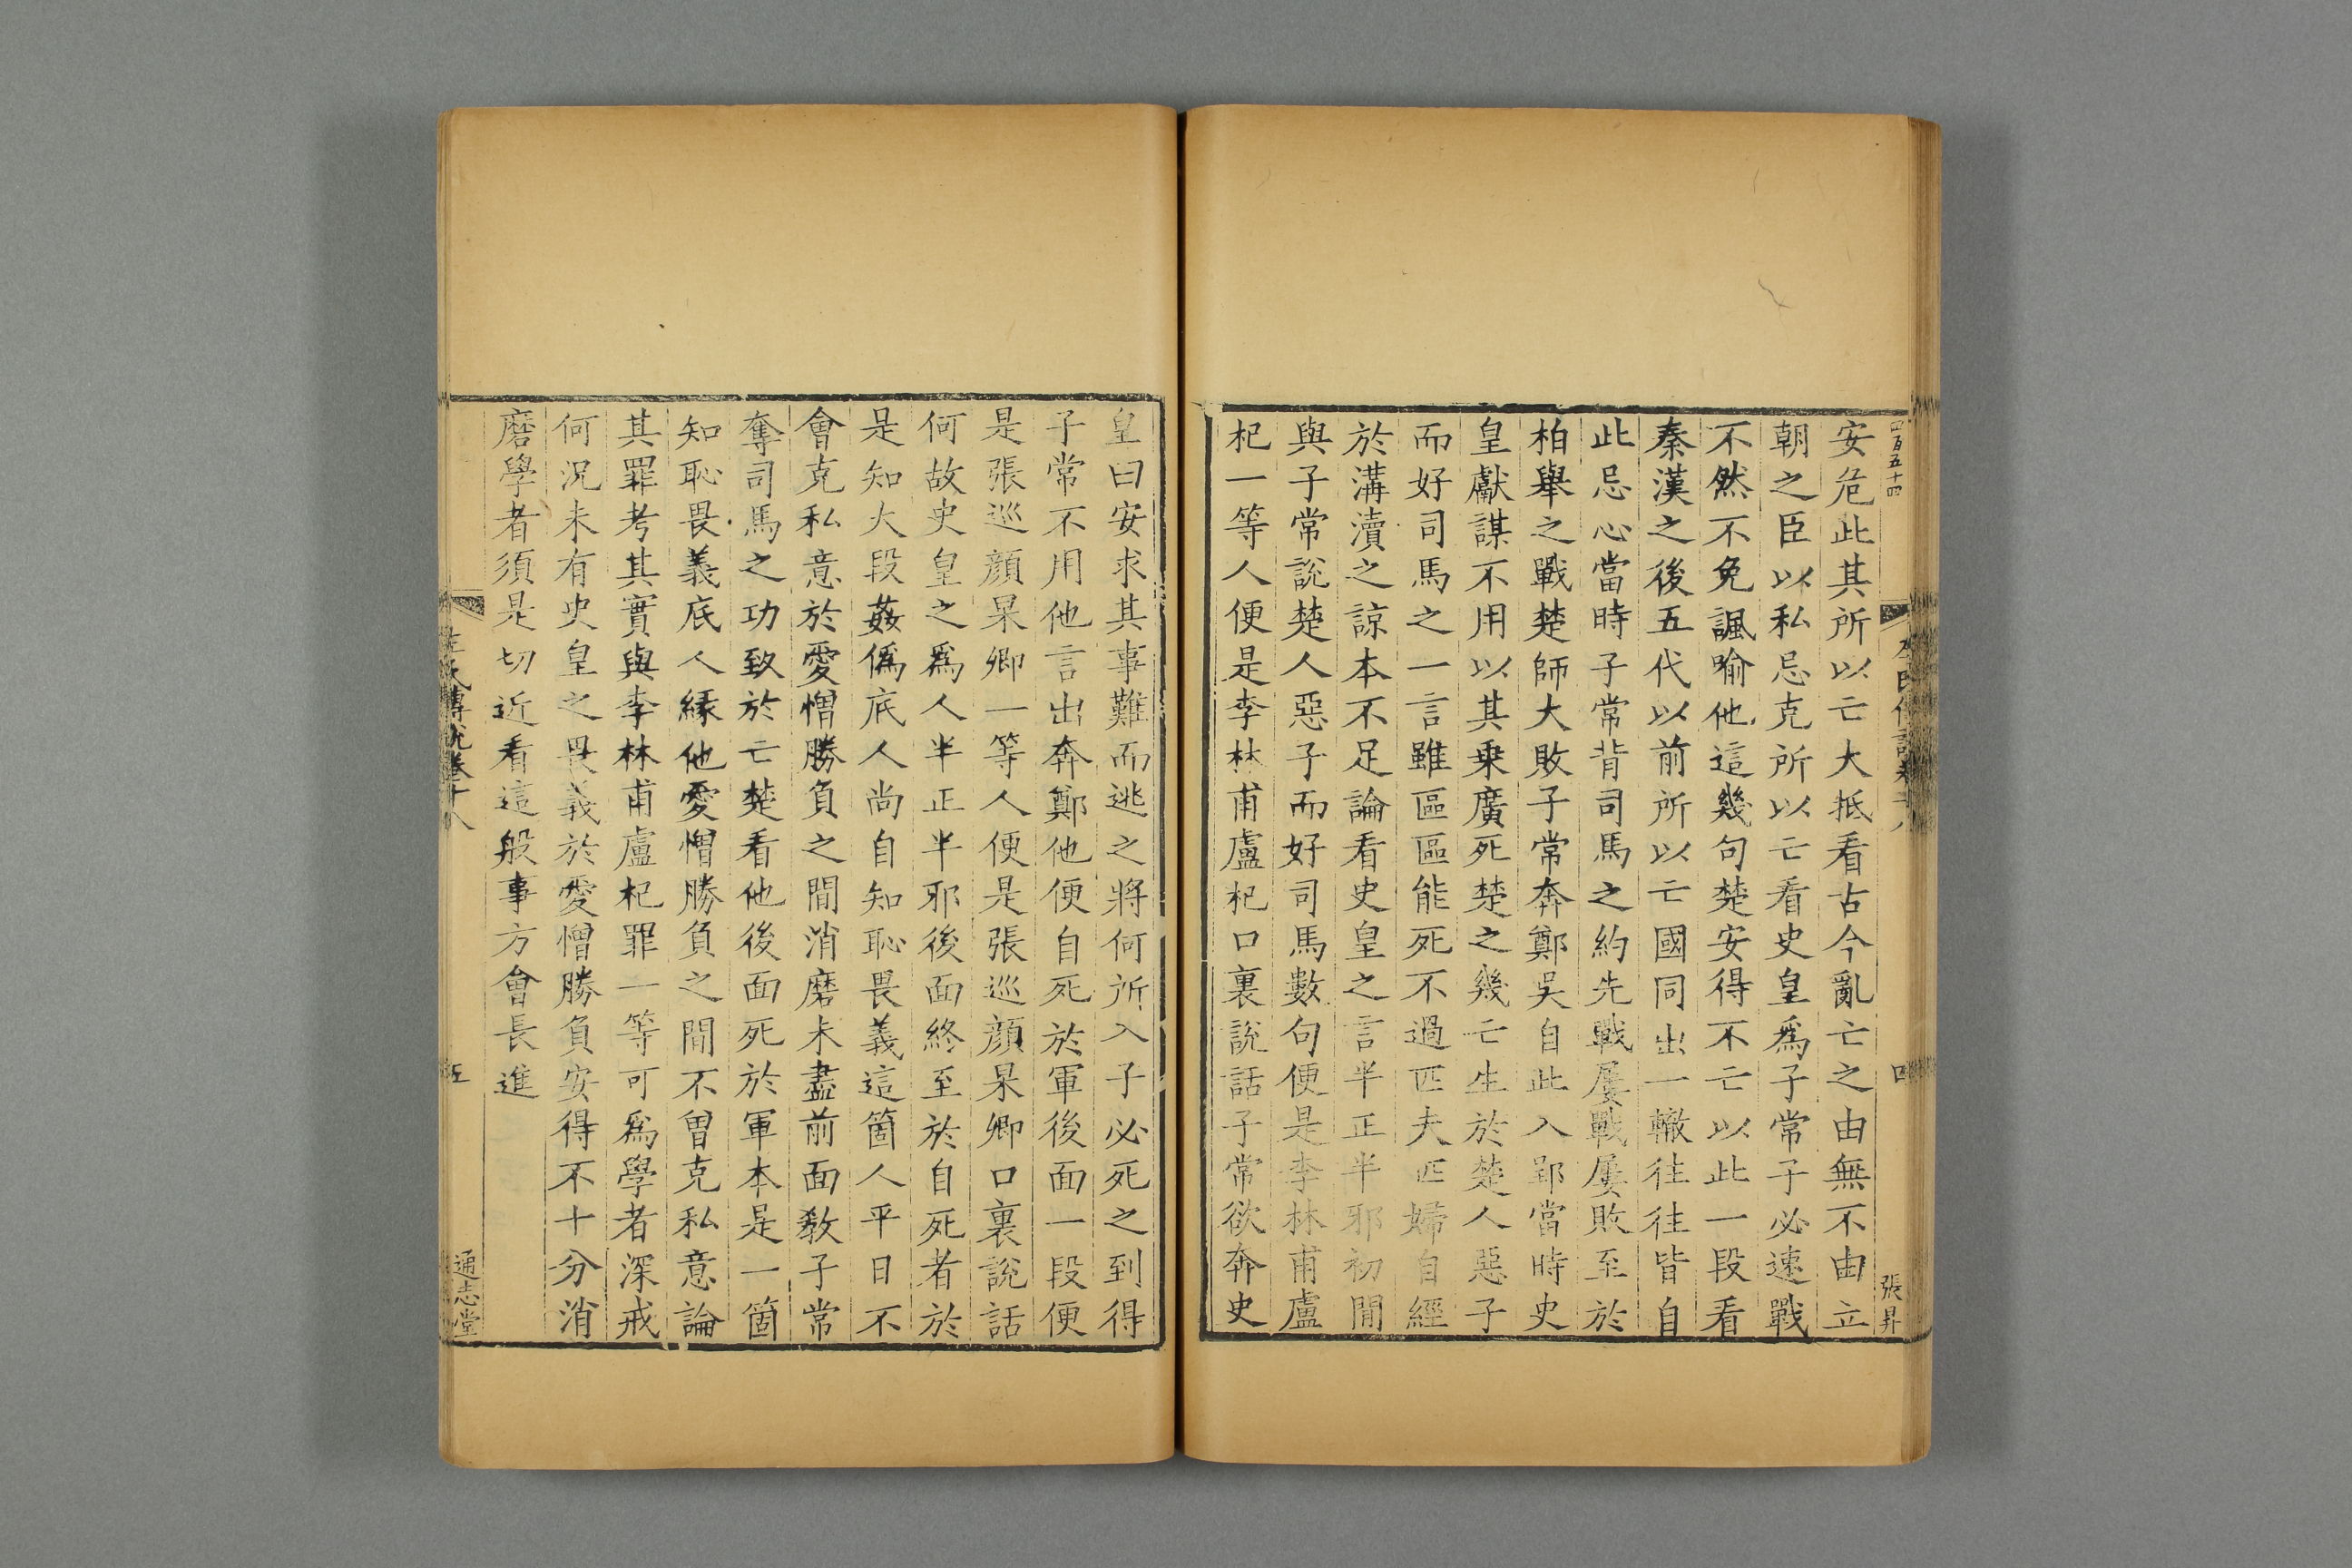 四百五十四
左氏傳說卷十八
四
張昇
安危此其所以亡大抵看古今亂亡之由無不由立
朝之臣以私忌克所以亡看史皇爲子常子必速戰
不然不免諷喻他這幾句楚安得不亡以此一段看
秦漢之後五代以前所以亡國同出一轍往往皆自
此忌心當時子常背司馬之約先戰屢戰屢敗至於
柏舉之戰楚師大敗子常奔鄭吳自此入郢當時史
皇獻謀不用以其乗廣死楚之幾亡生於楚人惡子
而好司馬之一言雖區區能死不過匹夫匹婦自經
於溝瀆之諒本不足論看史皇之言半正半邪初間
與子常說楚人惡子而好司馬數句便是李林甫盧
杞一等人便是李林甫盧杞口裏說話子常欲奔史
皇曰安求其事難而逃之將何所入子必死之到得
子常不用他言出奔鄭他便自死於軍後面一段便
是張巡顔杲卿一等人便是張巡顔杲卿口裏說話
何故史皇之爲人半正半邪後面終至於自死者於
是知大段姦僞底人尚自知恥畏義這箇人平日不
會克私意於愛憎勝負之間消磨未盡前面敎子常
奪司馬之功致於亡楚看他後面死於軍本是一箇
知恥畏義底人緣他愛憎勝負之間不曾克私意論
其罪考其實與李林甫盧杞罪一等可爲學者深戒
何況未有史皇之畏義於愛憎勝負安得不十分消
磨學者須是切近看這般事方會長進
左氏傳說卷十八
五
通志堂